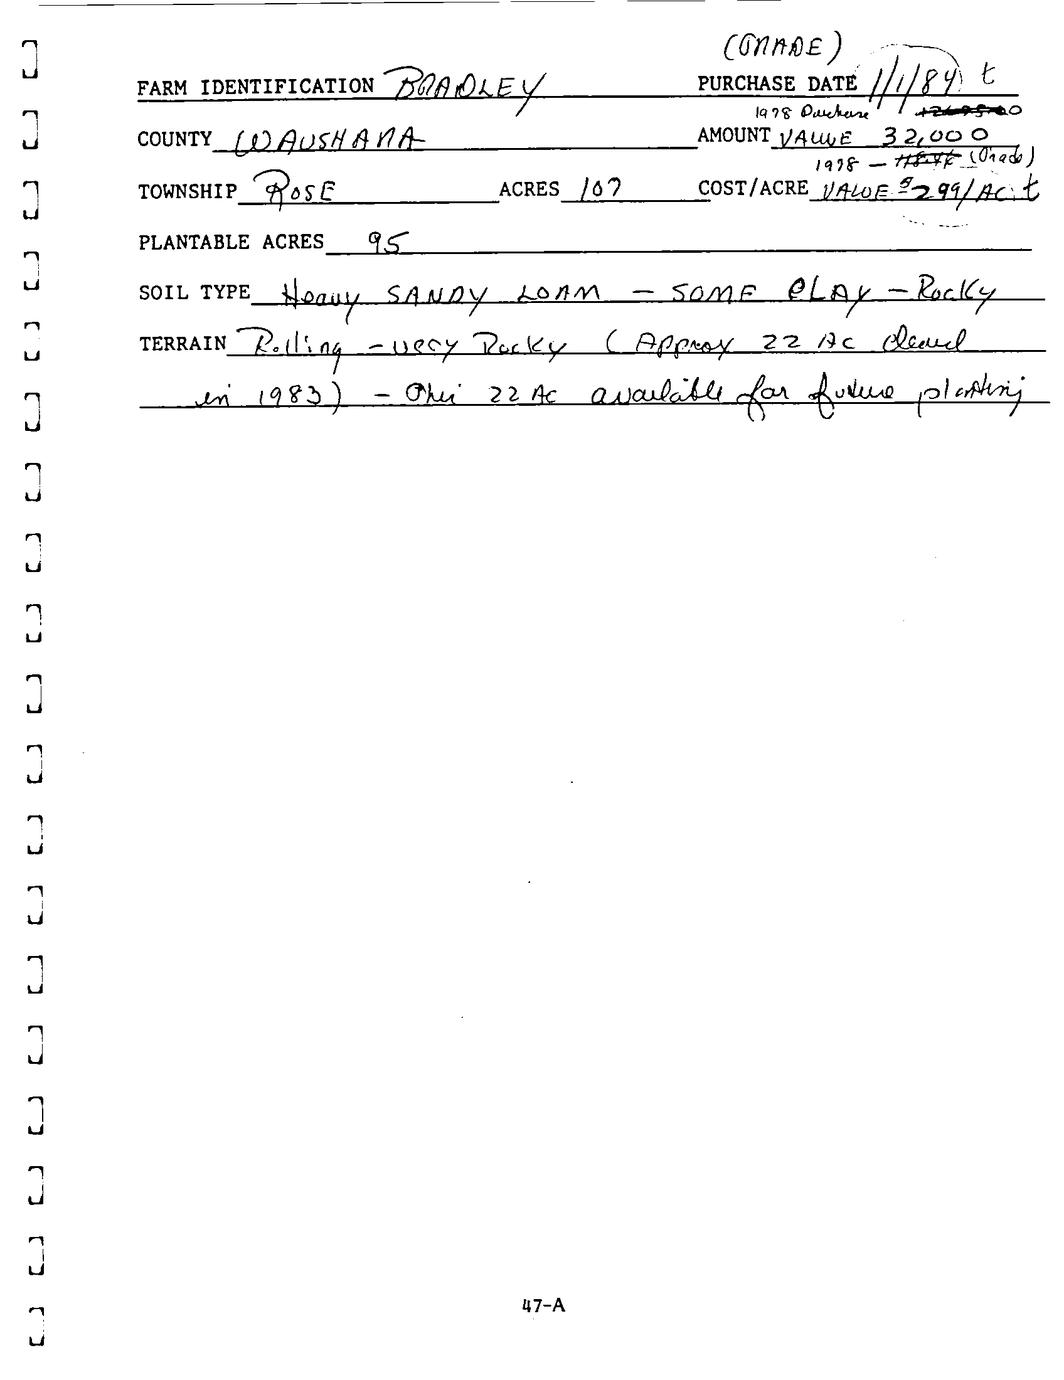 (TRADE)
FARM IDENTIFICATION BRADLEY PURCHASE DATE 1/1/84 t
1978 Purchase
COUNTY WAUSHARA AMOUNT VALUE 32,000
1978 – (Trade)
TOWNSHIP ROSE ACRES 107 COST/ACRE VALUE $299/AC t
PLANTABLE ACRES 95
SOIL TYPE Heavy SANDY LOAM – SOME CLAY – Rocky
TERRAIN Rolling – very Rocky (Approx 22 Ac cleared
in 1983) – 22 Ac available for future planting
47-A